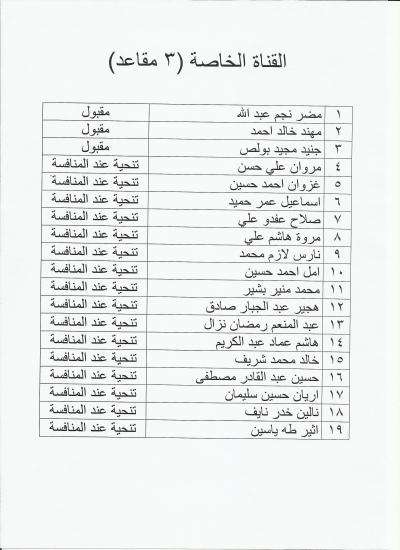 القناة الخاصة (٣ مقاعد)
١ مضر نجم عبد الله مقبول
٢ مهند خالد احمد مقبول
٣ جنيد مجيد بولص مقبول
٤ مروان علي حسن تنحية عند المنافسة
٥ غزوان احمد حسين تنحية عند المنافسة
٦ اسماعيل عمر حميد تنحية عند المنافسة
٧ صلاح عفدو علي تنحية عند المنافسة
٨ مروة هاشم علي تنحية عند المنافسة
٩ نارس لازم محمد تنحية عند المنافسة
١٠ امل احمد حسين تنحية عند المنافسة
١١ محمد منير بشير تنحية عند المنافسة
١٢ هجير عبد الجبار صادق تنحية عند المنافسة
١٣ عبد المنعم رمضان نزال تنحية عند المنافسة
١٤ هاشم عماد عبد الكريم تنحية عند المنافسة
١٥ خالد محمد شريف تنحية عند المنافسة
١٦ حسين عبد القادر مصطفى تنحية عند المنافسة
١٧ اريان حسين سليمان تنحية عند المنافسة
١٨ نالين خدر نايف تنحية عند المنافسة
١٩ اثير طه ياسين تنحية عند المنافسة